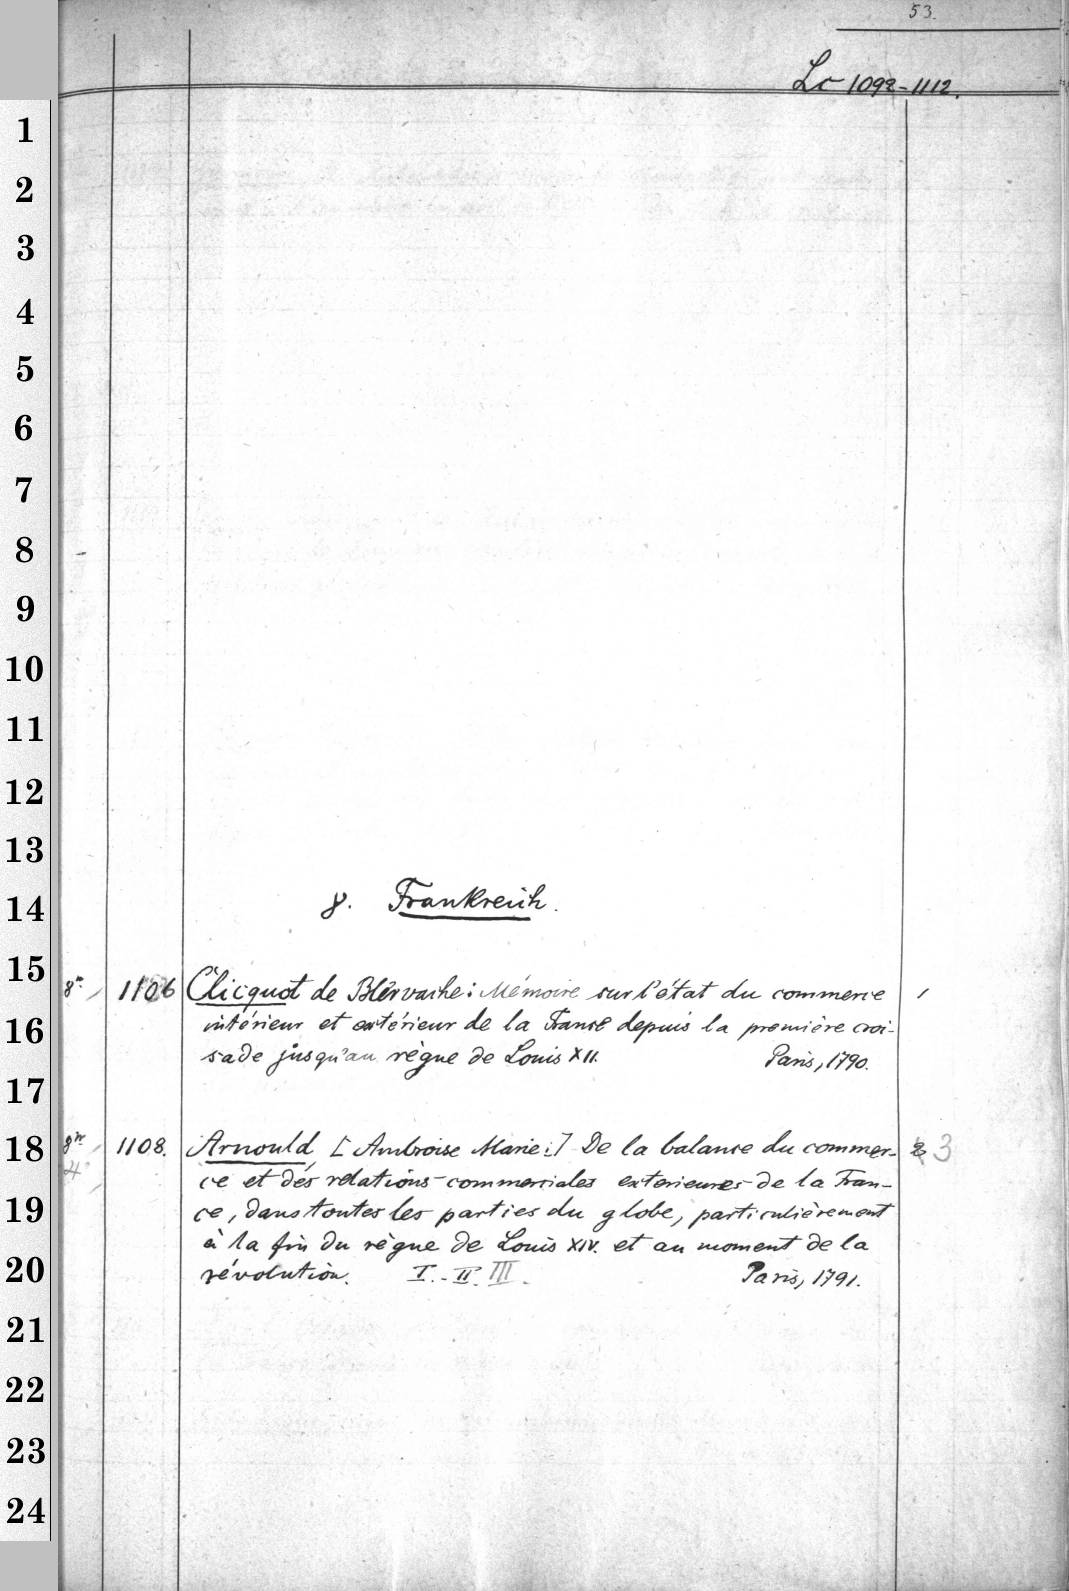 53.
Lc 1092-1112.
1
2
3
4
5
6
7
8
9
10
11
12
13
14
15
16
17
18
19
20
21
22
23
24
8. Frankreich.
8° 1106 Clicquot de Blervache: Mémoire sur l'état du commerce 1
intérieur et extérieur de la France depuis la première croi-
sade jusqu'au règne de Louis XII. Paris, 1790.
8° 1108. Arnould [Ambroise Marie:] De la balance du commer- 3
4°
ce et des relations commerciales exterieures de la Fran-
ce, dans toutes les parties du globe, particulièrement
à la fin du règne de Louis XIV. et au moment de la
révolution. I.-II. III. Paris, 1791.